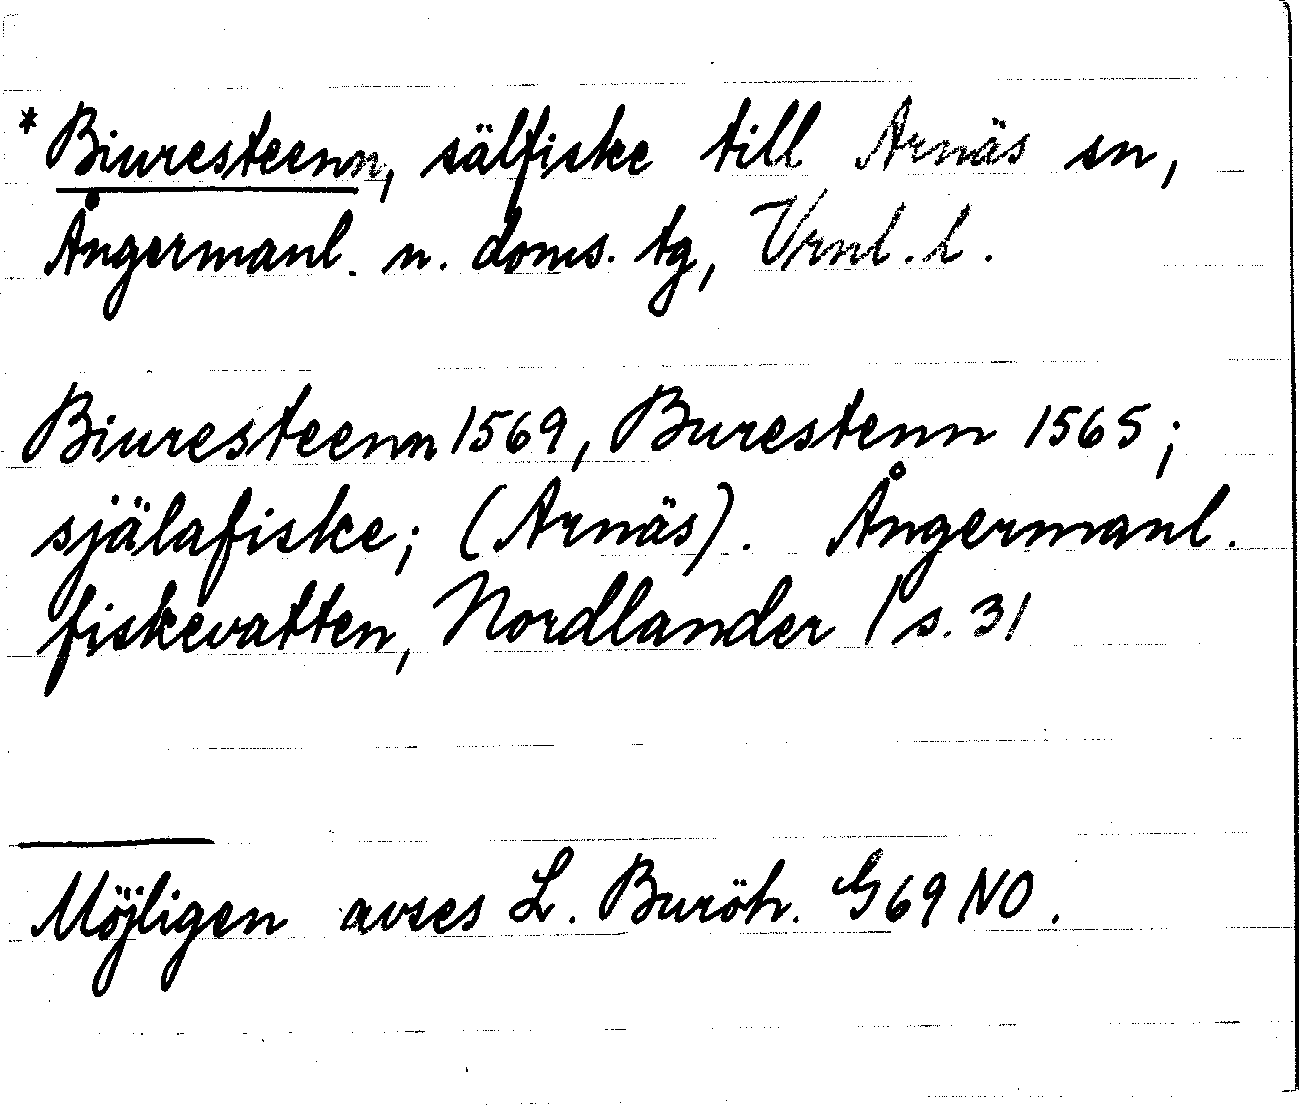 * Biuresteenn, sälfiske till Arnäs sn,
Ångermanl. n. doms. tg, Vrnl. l.
Biuresteenn 1569, Burestenn 1565;
själafiske; (Arnäs). Ångermanl.
fiskevatten, Nordlander / s. 31
Möjligen avses L. Buröh. G69 NO.